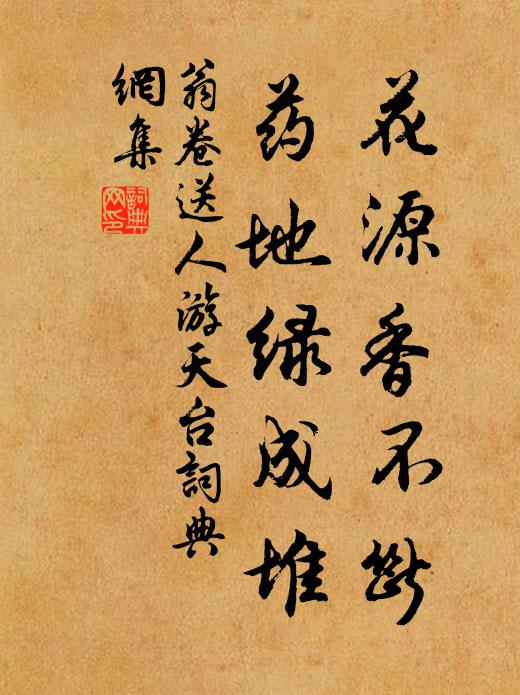 花源香不斷
药地绿成堆
翁卷送人游天台詞典
網集
詞典
网印